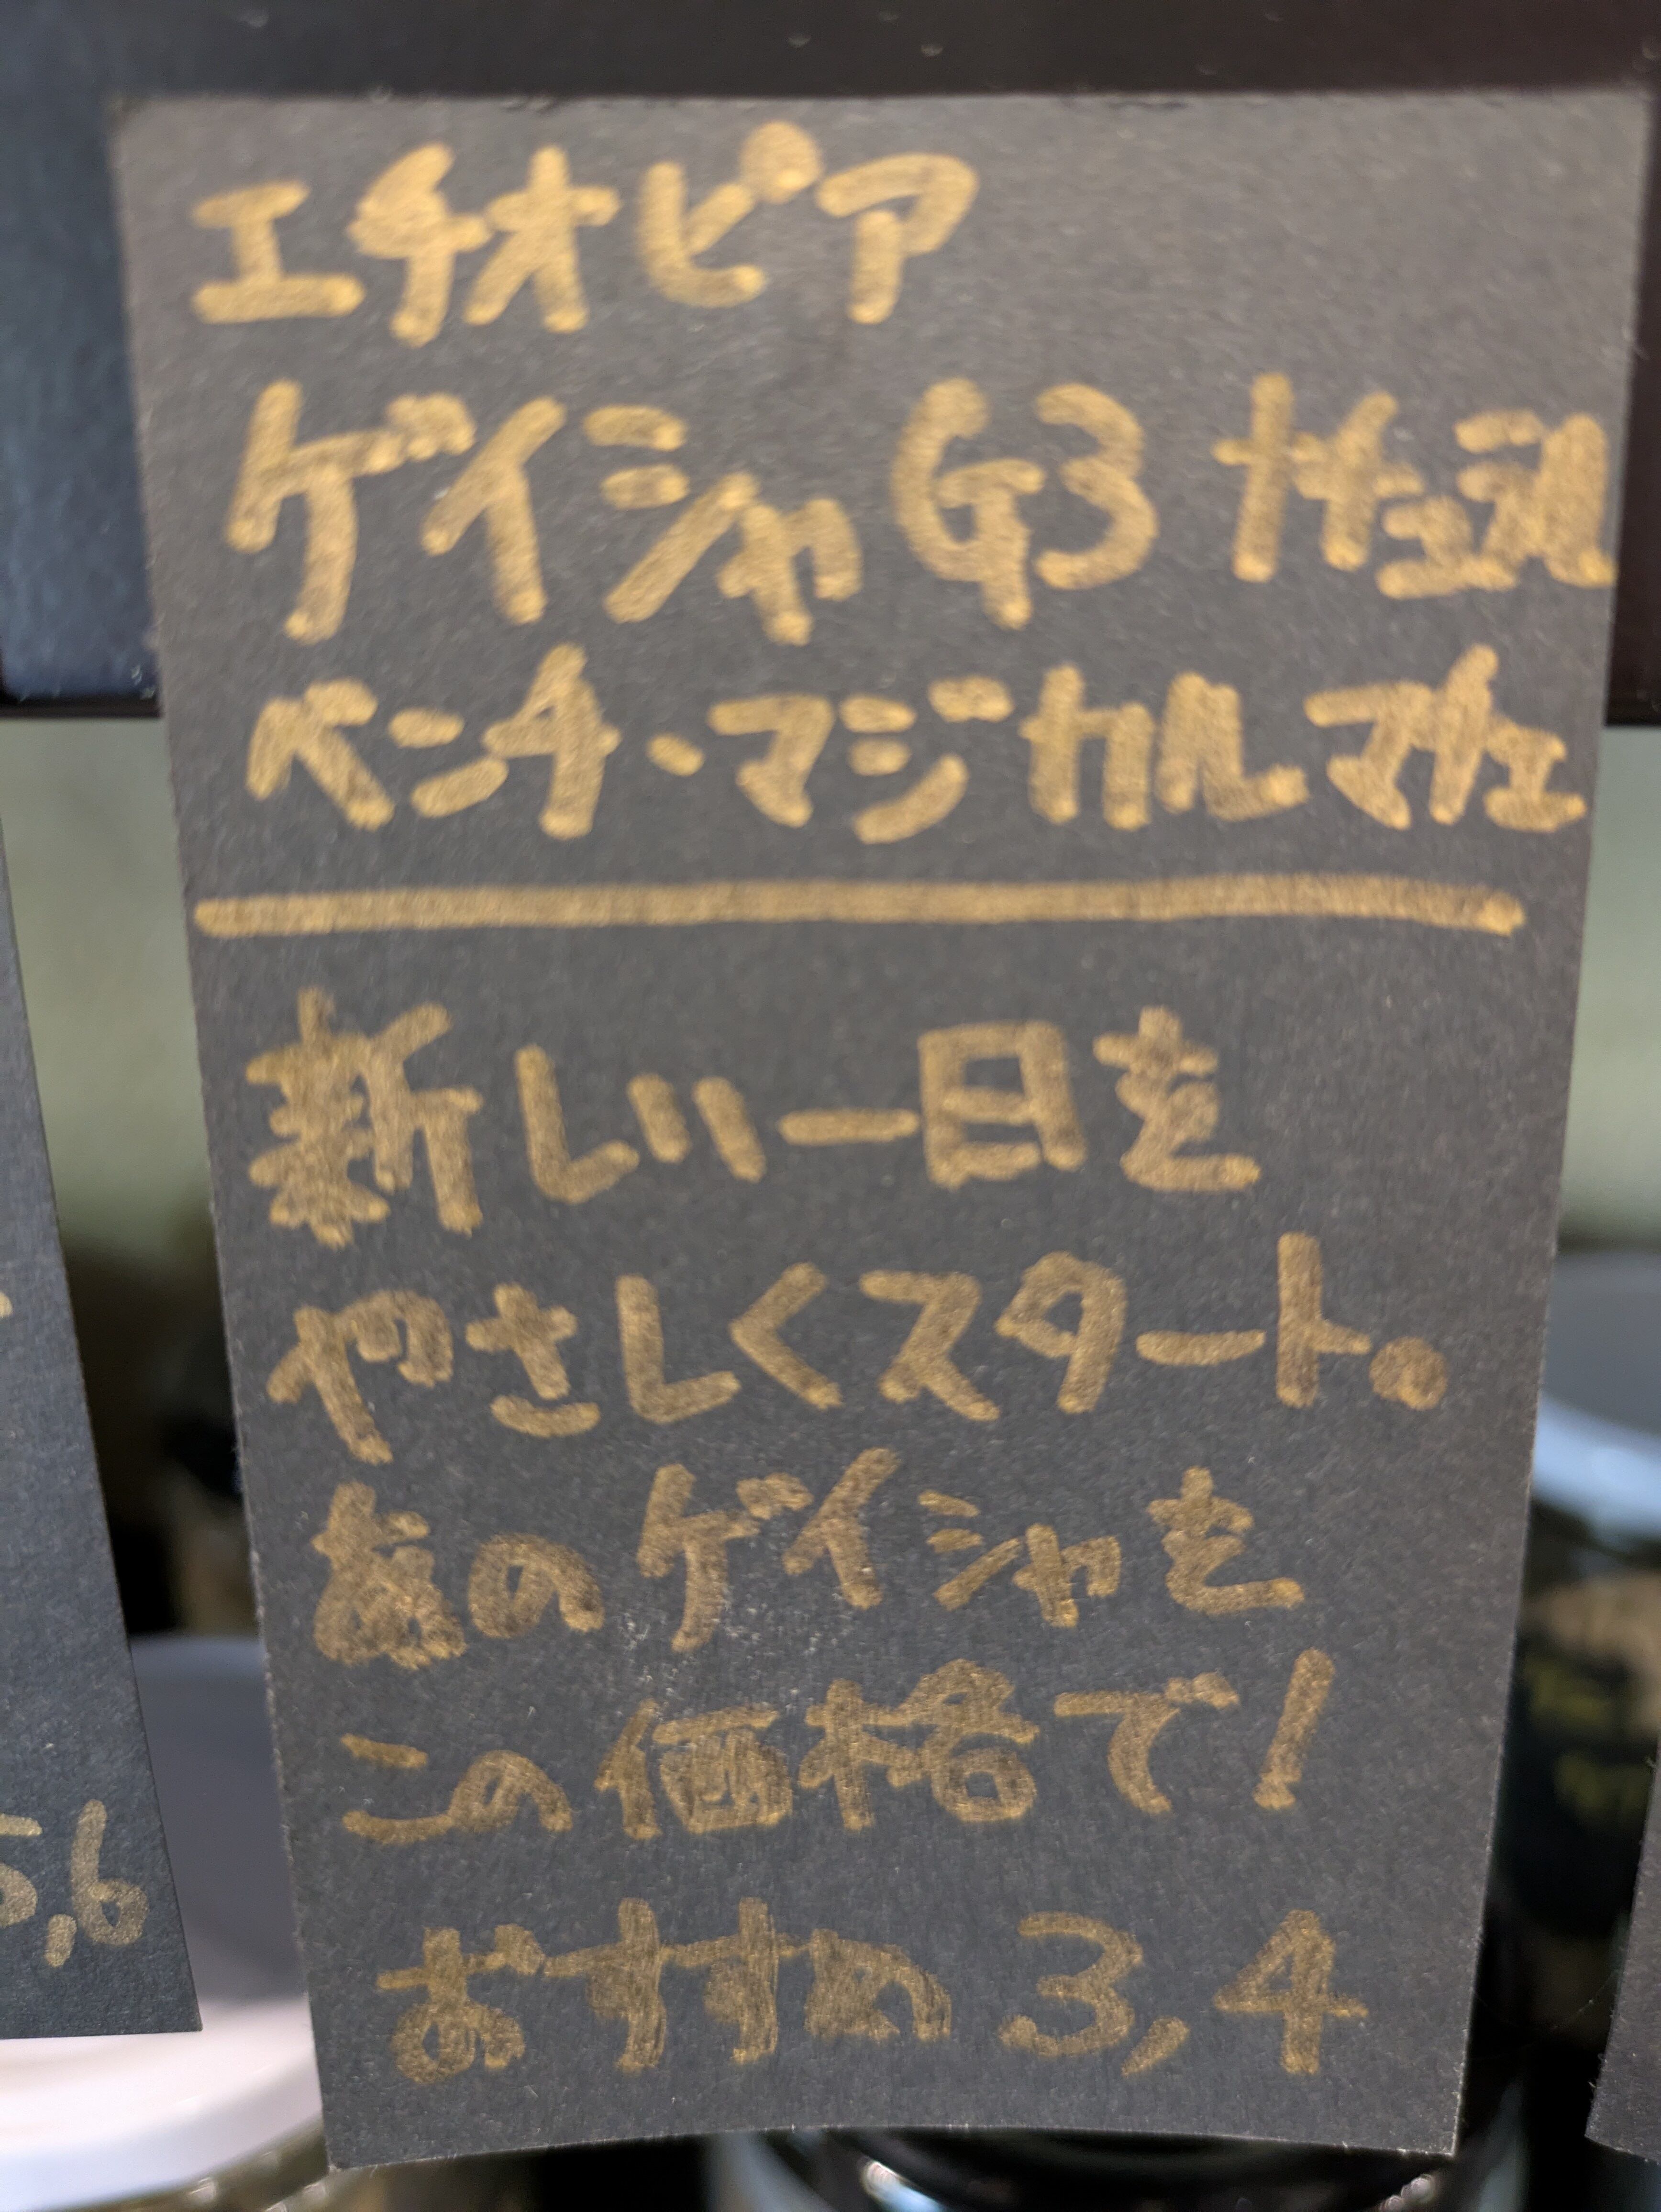 エチオピア
ゲイシャG3 ナチュラル
ベンチ・マジカルマチェ
新しい一日を
やさしくスタート。
あのゲイシャを
この価格で!
おすすめ 3,4
5,6